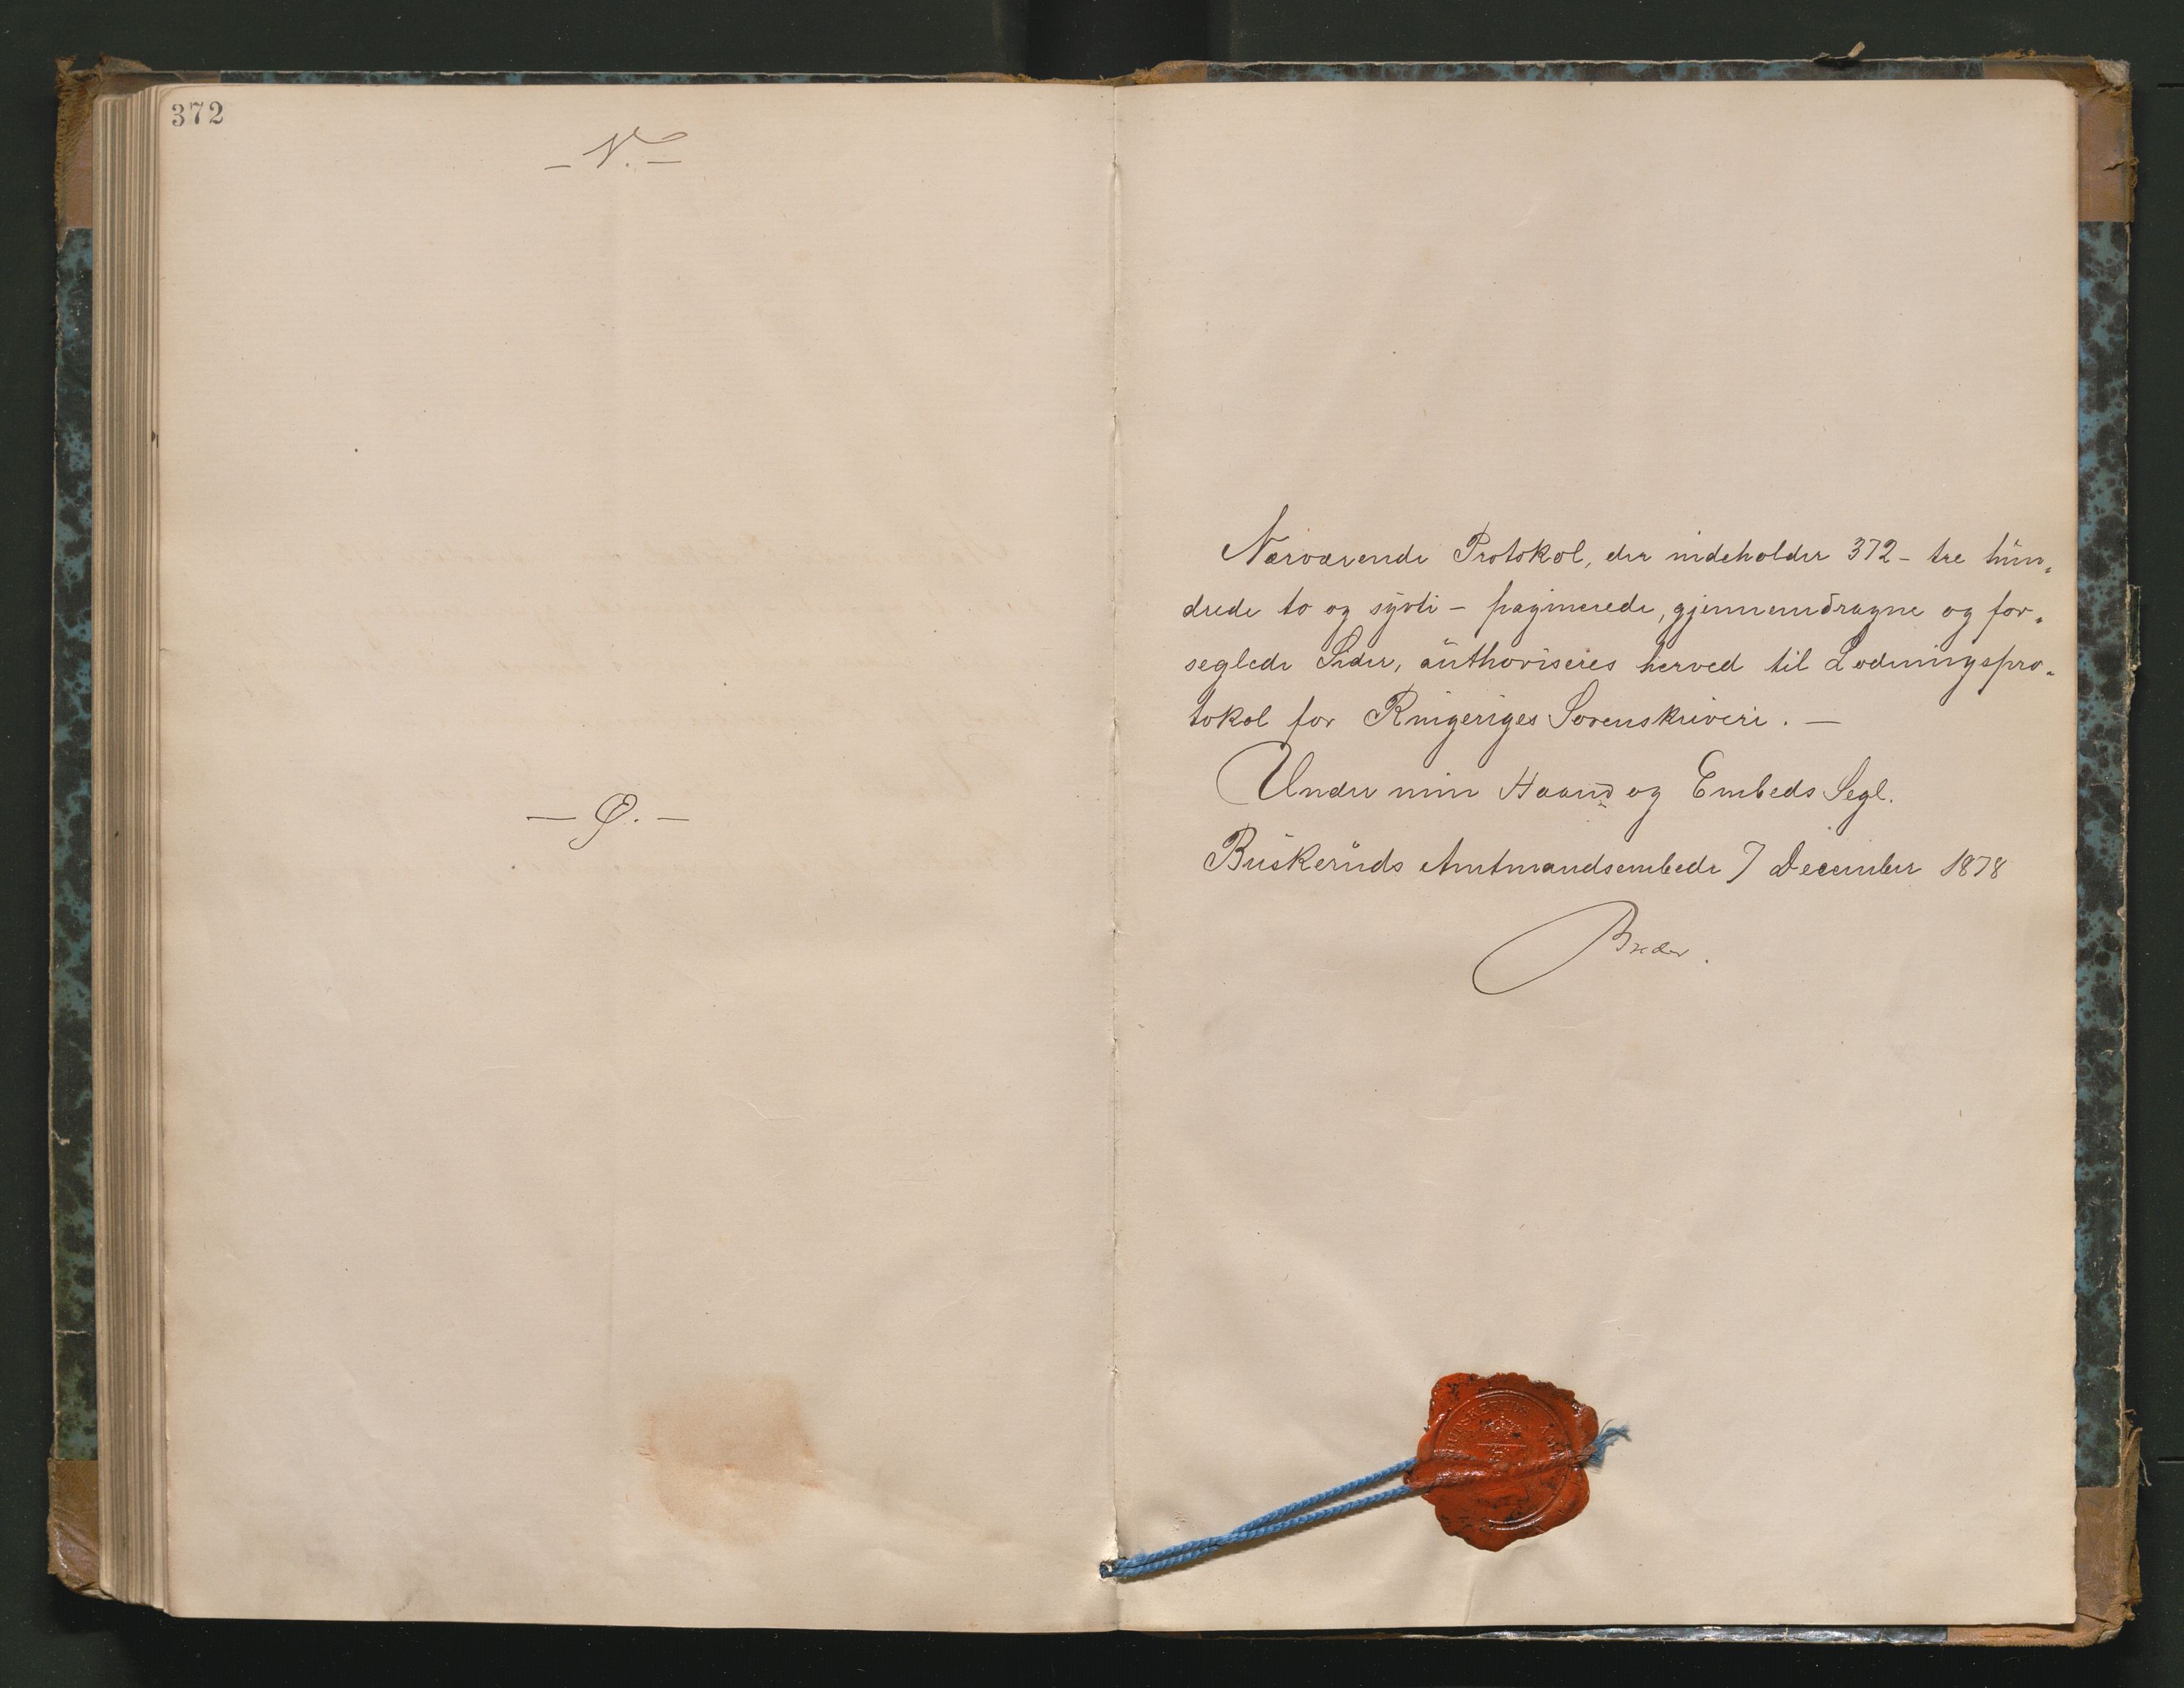 372
- V. -
- Ø. -
Nærværende Protokol, der indeholder 372 - tre hun-
drede to og sytti - paginerede, gjennemdragne og for-
seglede Sider, authoriseres herved til Lodningspro-
tokol for Ringeriges Sorenskriveri. -
Under min Haand og Embeds Segl.
Buskeruds Amtmandsembede 7 December 1878
BUSKERUDS AMT